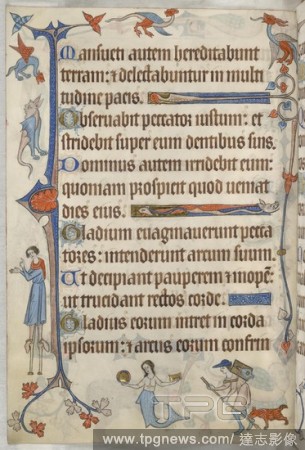 Mansueti autem hereditabunt
terram: ⁊ delectabuntur in multi
tudine pacis.
Observabit peccator iustum: et
stridebit super eum dentibus suis.
Dominus autem irridebit eum:
quoniam prospicit quod veniat
dies eius.
Gladium evaginaverunt pecca
tores: intenderunt arcum suum.
Ut decipiant pauperem ⁊ inopē:
ut trucidant rectos corde.
Gladius eorum intret in corda
ipsorum: ⁊ arcus eorum confrin
TPG
www.tpgnews.com/達志影像